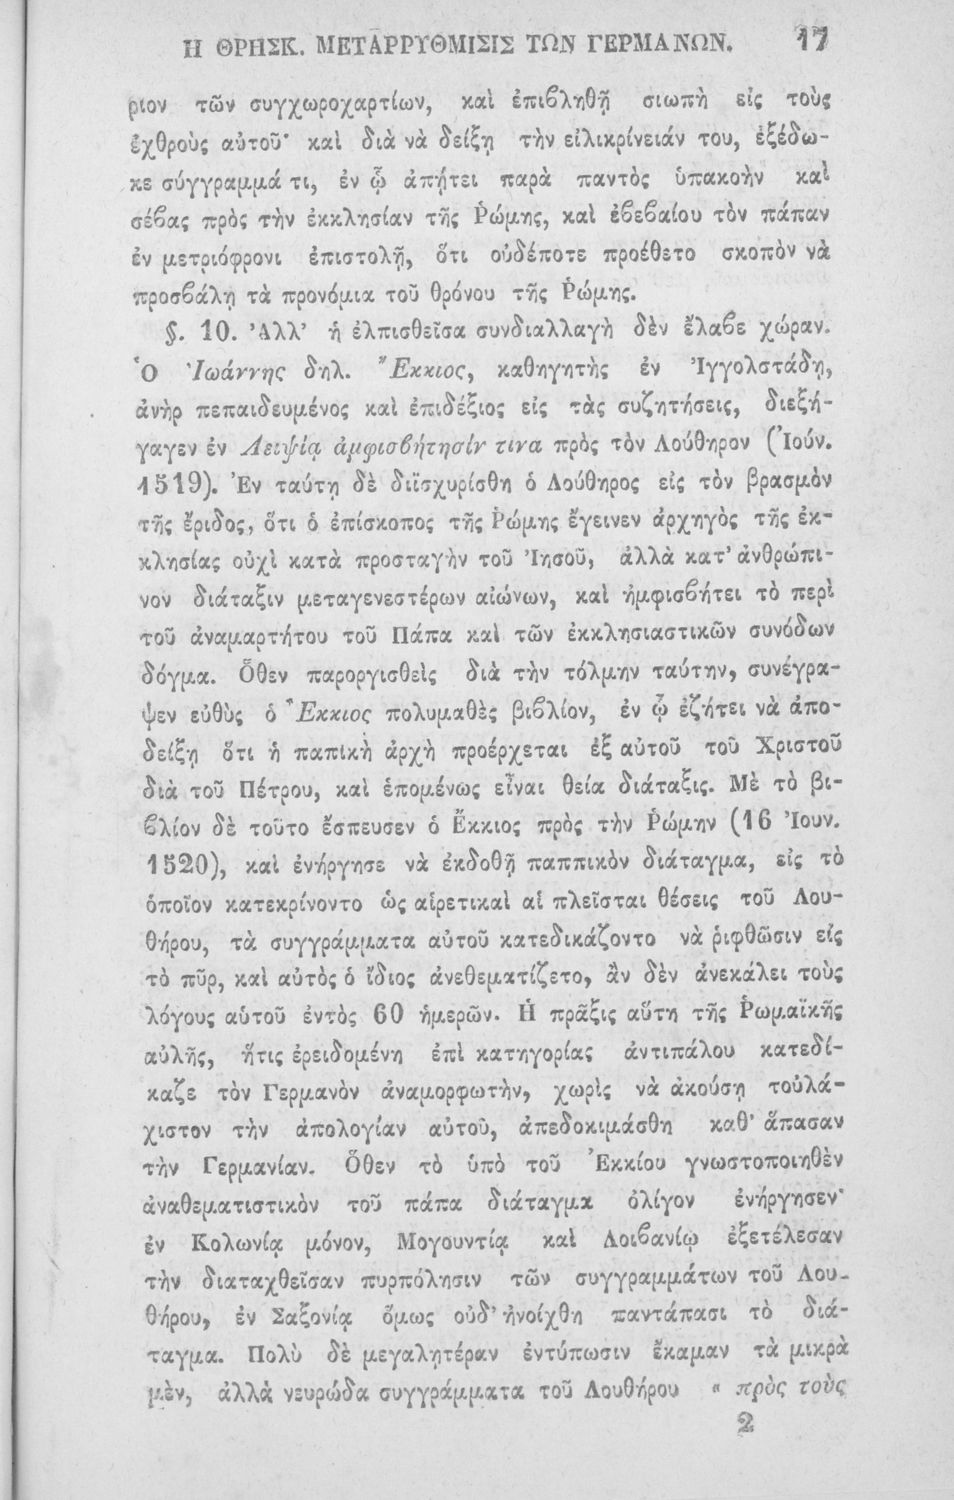 Η ΘΡΗΣΚ. ΜΕΤΑΡΡΥΘΜΙΣΙΣ ΤΩΝ ΓΕΡΜΑΝΩΝ. 17
ριον τῶν συγχωροχαρτίων, καὶ ἐπιβληθῇ σιωπὴ εἰς τοὺς
ἐχθροὺς αὐτοῦ· καὶ διὰ νὰ δείξῃ τὴν εἰλικρίνειάν του, ἐξέδω-
κε σύγγραμμά τι, ἐν ᾧ ἀπῄτει παρὰ παντὸς ὑπακοὴν καὶ
σέβας πρὸς τὴν ἐκκλησίαν τῆς Ῥώμης, καὶ ἐβεβαίου τὸν πάπαν
ἐν μετριόφρονι ἐπιστολῇ, ὅτι οὐδέποτε προέθετο σκοπὸν νὰ
προσβάλῃ τὰ προνόμια τοῦ θρόνου τῆς Ῥώμης.
§. 10. Ἀλλ' ἡ ἐλπισθεῖσα συνδιαλλαγὴ δὲν ἔλαβε χώραν.
Ὁ Ἰωάννης δηλ. Ἔκκιος, καθηγητὴς ἐν Ἰγγολστάδῃ,
ἀνὴρ πεπαιδευμένος καὶ ἐπιδέξιος εἰς τὰς συζητήσεις, διεξή-
γαγεν ἐν Λειψίᾳ ἀμφισβήτησίν τινα πρὸς τὸν Λούθηρον (Ἰούν.
1519). Ἐν ταύτῃ δὲ διϊσχυρίσθη ὁ Λούθηρος εἰς τὸν βρασμὸν
τῆς ἔριδος, ὅτι ὁ ἐπίσκοπος τῆς Ῥώμης ἔγεινεν ἀρχηγὸς τῆς ἐκ-
κλησίας οὐχὶ κατὰ προσταγὴν τοῦ Ἰησοῦ, ἀλλὰ κατ' ἀνθρώπι-
νον διάταξιν μεταγενεστέρων αἰώνων, καὶ ἠμφισβήτει τὸ περὶ
τοῦ ἀναμαρτήτου τοῦ Πάπα καὶ τῶν ἐκκλησιαστικῶν συνόδων
δόγμα. Ὅθεν παροργισθεὶς διὰ τὴν τόλμην ταύτην, συνέγρα-
ψεν εὐθὺς ὁ Ἔκκιος πολυμαθὲς βιβλίον, ἐν ᾧ ἐζήτει νὰ ἀπο-
δείξῃ ὅτι ἡ παπικὴ ἀρχὴ προέρχεται ἐξ αὐτοῦ τοῦ Χριστοῦ
διὰ τοῦ Πέτρου, καὶ ἑπομένως εἶναι θεία διάταξις. Μὲ τὸ βι-
βλίον δὲ τοῦτο ἔσπευσεν ὁ Ἔκκιος πρὸς τὴν Ῥώμην (16 Ἰουν.
1520), καὶ ἐνήργησε νὰ ἐκδοθῇ παππικὸν διάταγμα, εἰς τὸ
ὁποῖον κατεκρίνοντο ὡς αἱρετικαὶ αἱ πλεῖσται θέσεις τοῦ Λου-
θήρου, τὰ συγγράμματα αὐτοῦ κατεδικάζοντο νὰ ῥιφθῶσιν εἰς
τὸ πῦρ, καὶ αὐτὸς ὁ ἴδιος ἀνεθεματίζετο, ἂν δὲν ἀνεκάλει τοὺς
λόγους αὑτοῦ ἐντὸς 60 ἡμερῶν. Ἡ πρᾶξις αὕτη τῆς Ῥωμαϊκῆς
αὐλῆς, ἥτις ἐρειδομένη ἐπὶ κατηγορίας ἀντιπάλου κατεδί-
καζε τὸν Γερμανὸν ἀναμορφωτὴν, χωρὶς νὰ ἀκούσῃ τοὐλά-
χιστον τὴν ἀπολογίαν αὐτοῦ, ἀπεδοκιμάσθη καθ' ἅπασαν
τὴν Γερμανίαν. Ὅθεν τὸ ὑπὸ τοῦ Ἐκκίου γνωστοποιηθὲν
ἀναθεματιστικὸν τοῦ πάπα διάταγμα ὀλίγον ἐνήργησεν·
ἐν Κολωνίᾳ μόνον, Μογουντίᾳ καὶ Λοιβανίῳ ἐξετέλεσαν
τὴν διαταχθεῖσαν πυρπόλησιν τῶν συγγραμμάτων τοῦ Λου-
θήρου, ἐν Σαξονίᾳ ὅμως οὐδ' ἠνοίχθη παντάπασι τὸ διά-
ταγμα. Πολὺ δὲ μεγαλητέραν ἐντύπωσιν ἔκαμαν τὰ μικρὰ
μὲν, ἀλλὰ νευρώδα συγγράμματα τοῦ Λουθήρου « πρὸς τοὺς
2